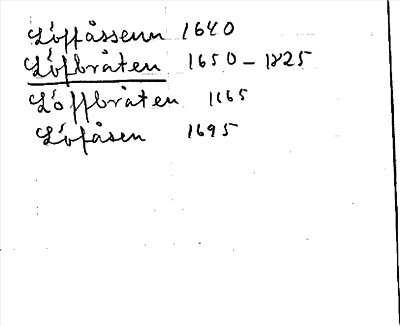 Löffåssenn 1640
Löfbråten 1650 - 1825
Löffbråten 1665
Löfåsen 1695